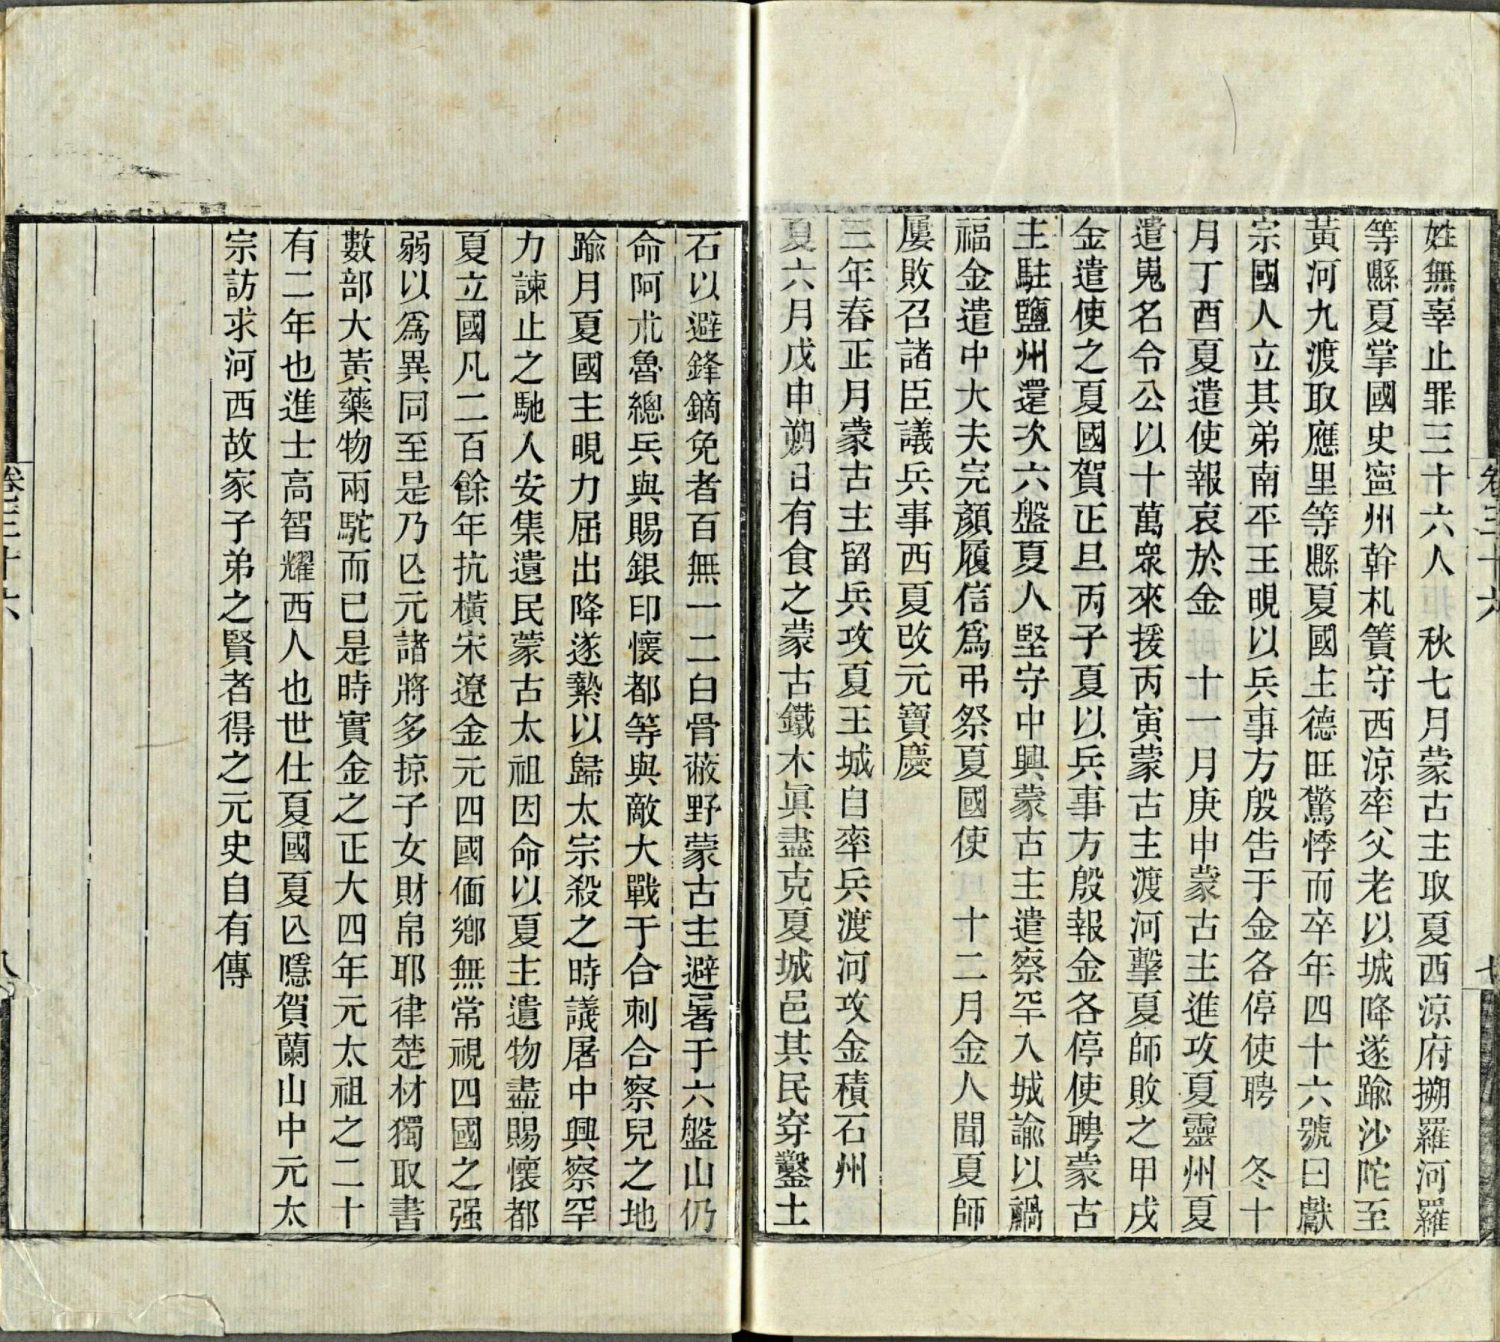 卷三十六
七
姓無辜止罪三十六人　秋七月蒙古主取夏西涼府搠羅河羅
等縣夏掌國史寍州幹札簀守西涼率父老以城降遂踰沙陀至
黃河九渡取應里等縣夏國主德旺驚悸而卒年四十六號曰獻
宗國人立其弟南平王晛以兵事方殷告于金各停使聘　冬十
月丁酉夏遣使報哀於金　十一月庚申蒙古主進攻夏靈州夏
遣嵬名令公以十萬衆來援丙寅蒙古主渡河擊夏師敗之甲戌
金遣使之夏國賀正旦丙子夏以兵事方殷報金各停使聘蒙古
主駐鹽州還次六盤夏人堅守中興蒙古主遣察罕入城諭以禍
福金遣中大夫完顏履信爲弔祭夏國使　十二月金人聞夏師
屢敗召諸臣議兵事西夏改元寶慶
三年春正月蒙古主留兵攻夏王城自率兵渡河攻金積石州
夏六月戊申朔日有食之蒙古鐵木眞盡克夏城邑其民穿鑿土
石以避鋒鏑免者百無一二白骨蔽野蒙古主避暑于六盤山仍
命阿朮魯總兵與賜銀印懷都等與敵大戰于合刺合察兒之地
踰月夏國主晛力屈出降遂縶以歸太宗殺之時議屠中興察罕
力諫止之馳入安集遺民蒙古太祖因命以夏主遺物盡賜懷都
夏立國凡二百餘年抗橫宋遼金元四國偭鄉無常視四國之强
弱以爲異同至是乃亾元諸將多掠子女財帛耶律楚材獨取書
數部大黃藥物兩駝而已是時實金之正大四年元太祖之二十
有二年也進士高智耀西人也世仕夏國夏亾隱賀蘭山中元太
宗訪求河西故家子弟之賢者得之元史自有傳
卷三十六
八